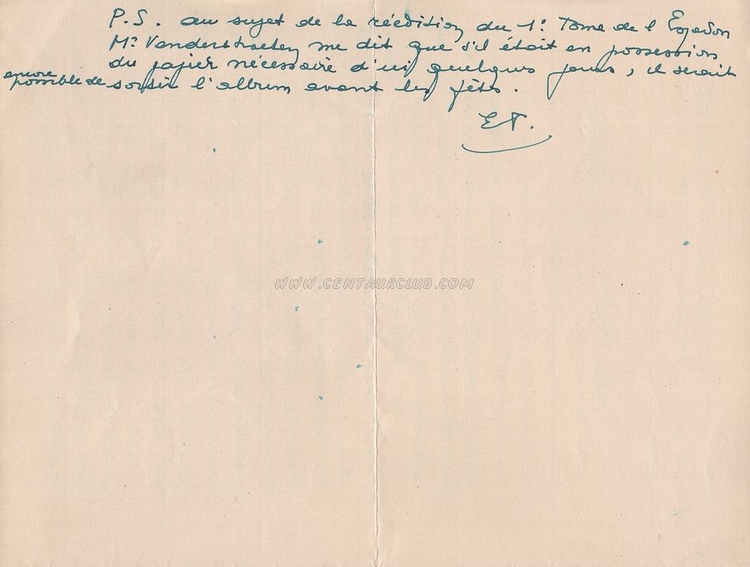 P.S. au sujet de la réédition du 1º Tome de l'Espadon
Mr Vanderstraeten me dit que s'il était en possession
du papier nécessaire d'ici quelques jours, il serait
encore possible de sortir l'album avant les fêtes.
E.P.
WWW.CENTAURCLUB.COM